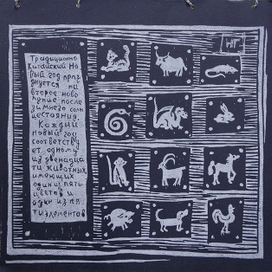 Традиционо
китайский Но
вый год праз
днуется на
второе ново
луние после
зимнего солн
цестояния.
Каждый
новый год
соответству
ет одному
из двенадца
ти животных
имеющих
один из пяти
цветов и
один из пя
ти элементов
НГ